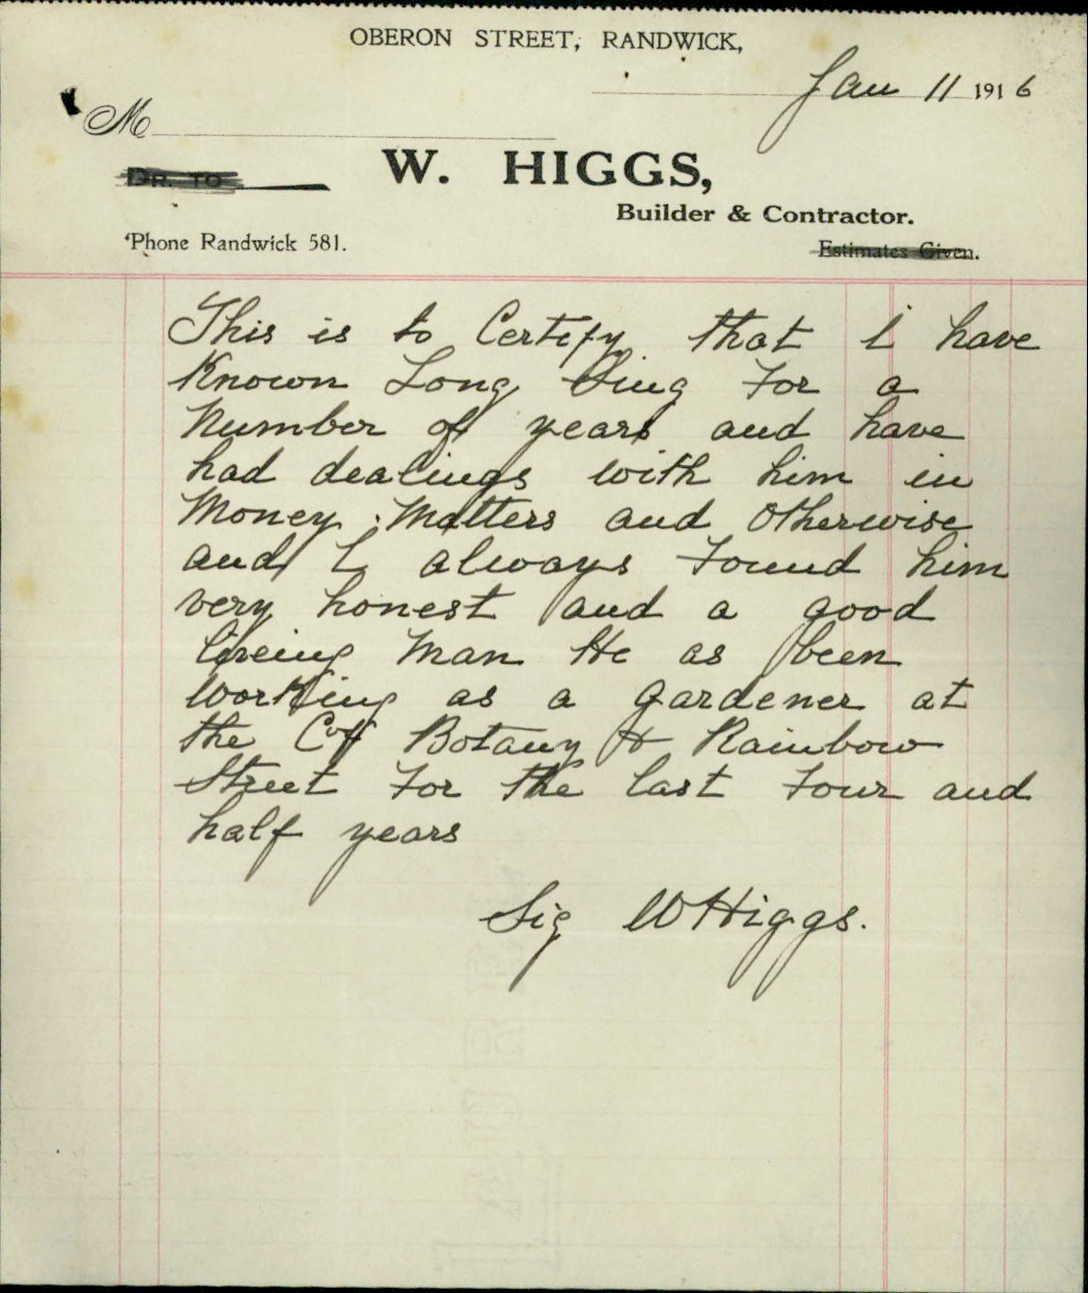 OBERON STREET, RANDWICK,
Jan 11 1916
M
DR. TO
W. HIGGS,
Builder & Contractor.
'Phone Randwick 581.
Estimates Given.
This is to Certify that I have
Known Long Sing For a
Number of years and have
had dealings with him in
Money Matters and Otherwise
and I always Found him
very honest and a good
liveing Man He as been
working as a gardener at
the Botany & Rainbow
Street For the last Four and
half years
Sig W Higgs.